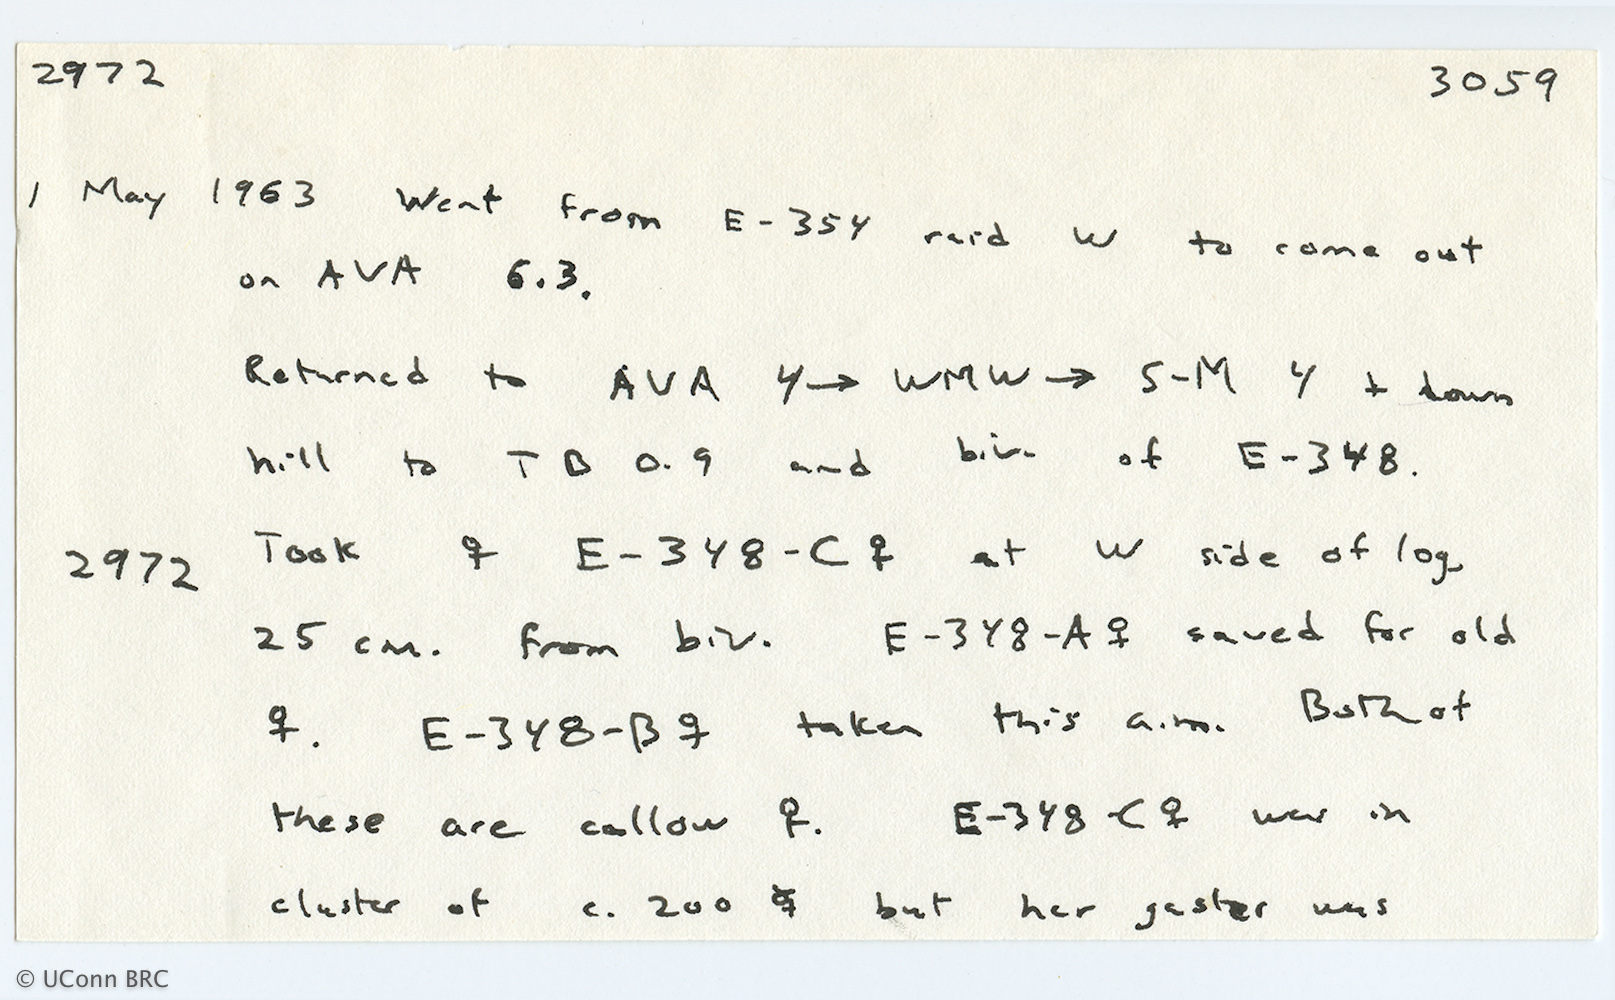 2972 3059
1 May 1963 Went from E-354 raid W to come out
on AVA 6.3.
Returned to AVA 4→ WMW → S-M 4 + down
hill to TB 0.9 and biv. of E-348.
2972 Took ♀ E-348-C♀ at W side of log
25 cm. from biv. E-348-A♀ saved for old
♀. E-348-B♀ taken this a.m. Both of
these are callow ♀. E-348-C♀ was in
cluster of c. 200 ☿ but her gaster was
© UConn BRC